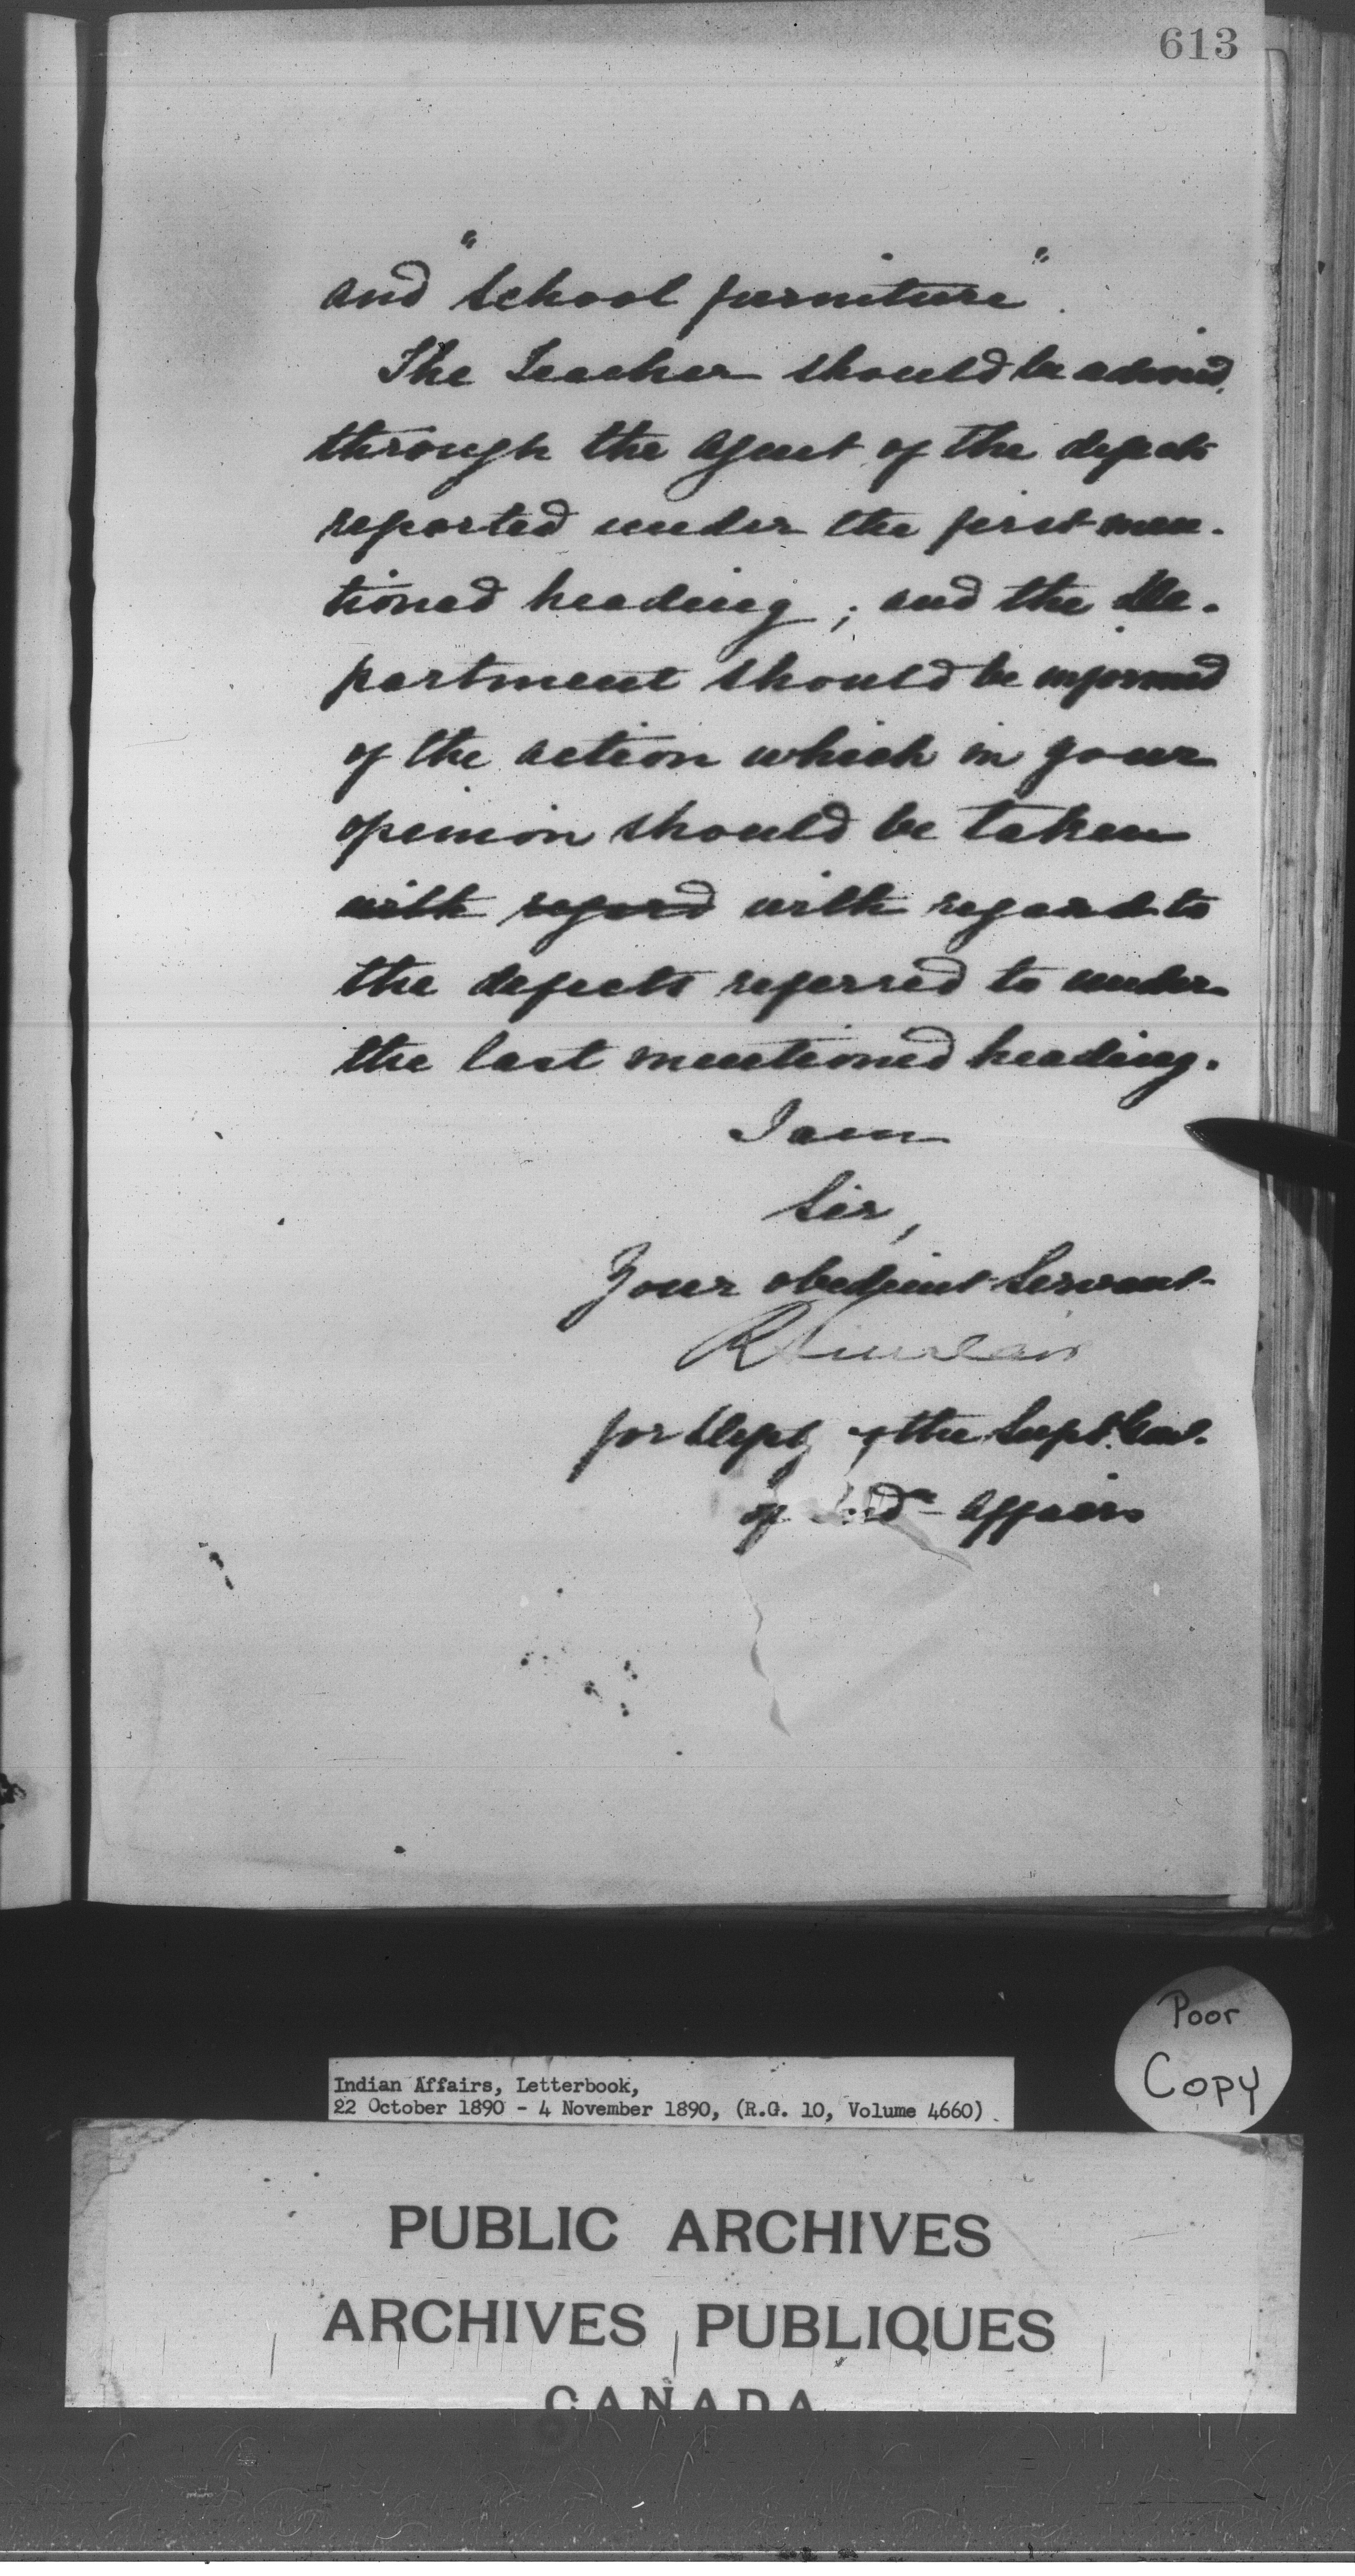 613
and "School furniture".
The Teacher should be advised,
through the Agent of the defects
reported under the first men-
tioned heading; and the De-
partment should be informed
of the action which in your
opinion should be taken
with regard with regard to
the defects referred to under
the last mentioned heading.
I am
Sir,
Your obedient Servant
R Sinclair
for Dept of the Supt. Genl.
of Ind. Affairs
Poor
Copy
Indian Affairs, Letterbook,
22 October 1890 - 4 November 1890, (R.G. 10, Volume 4660)
PUBLIC ARCHIVES
ARCHIVES PUBLIQUES
CANADA